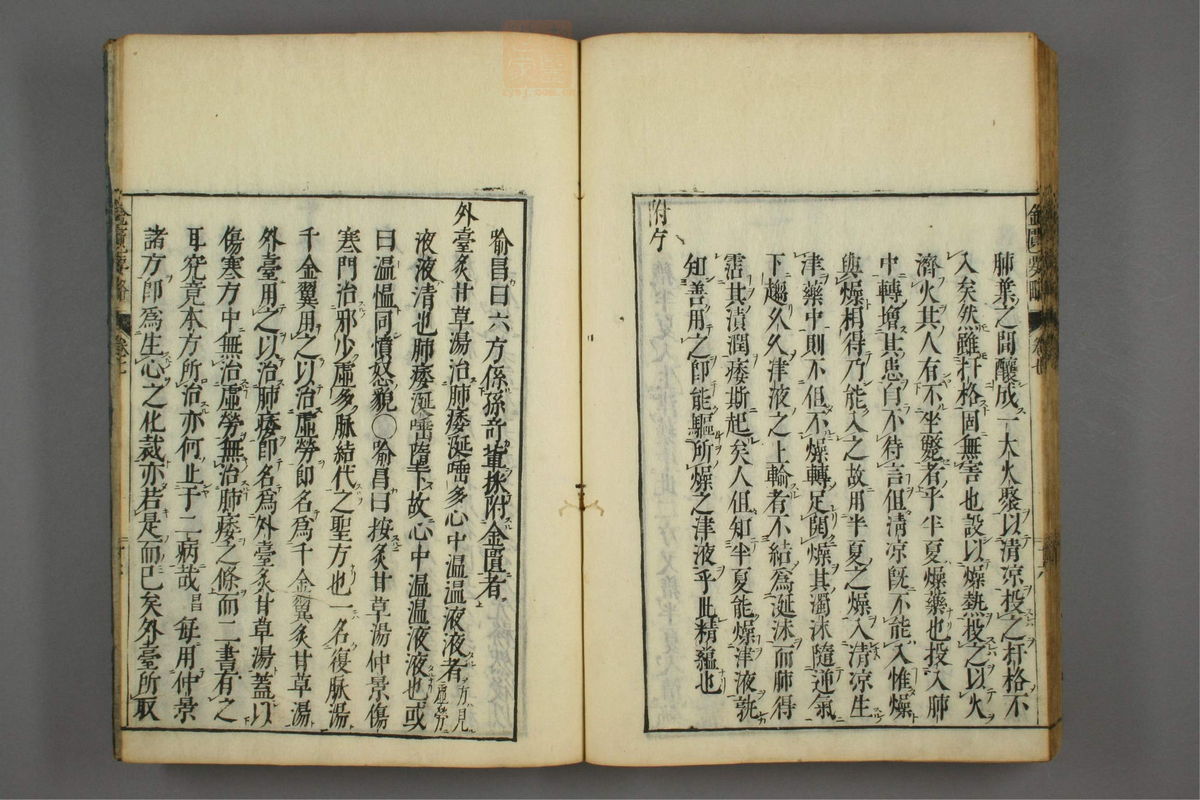 肺葉之間釀成一大火聚以清涼投之扞格不
入矣然雖扞格固無害也設以燥熱投之以火
濟火其人有不坐斃者乎半夏燥藥也投入肺
中轉增其患自不待言但清涼既不能入惟燥
與燥相得乃能入之故用半夏之燥入清涼生
津藥中則不但不燥轉足開燥其濁沫隨逆氣
下趨久久津液之上輸者不結為涎沫而肺得
霑其漬潤痿斯起矣人但知半夏能燥津液孰
知善用之即能驅所燥之津液乎此精蘊也
附方
喻昌曰六方係孫奇輩採附金匱者
外臺炙甘草湯治肺痿涎唾多心中温温液液者方見虛勞
液液清也肺痿涎唾墮下故心中温温液液也或
曰温慍同憤怒貌〇喻昌曰按炙甘草湯仲景傷
寒門治邪少虛多脉結代之聖方也一名復脉湯
千金翼用之以治虛勞即名為千金翼炙甘草湯
外臺用之以治肺痿即名為外臺炙甘草湯蓋以
傷寒方中無治虛勞無治肺痿之條而二書有之
耳究竟本方所治亦何止于二病哉昌每用仲景
諸方即為生心之化裁亦若是而已矣外臺所取
金匱要略 卷七